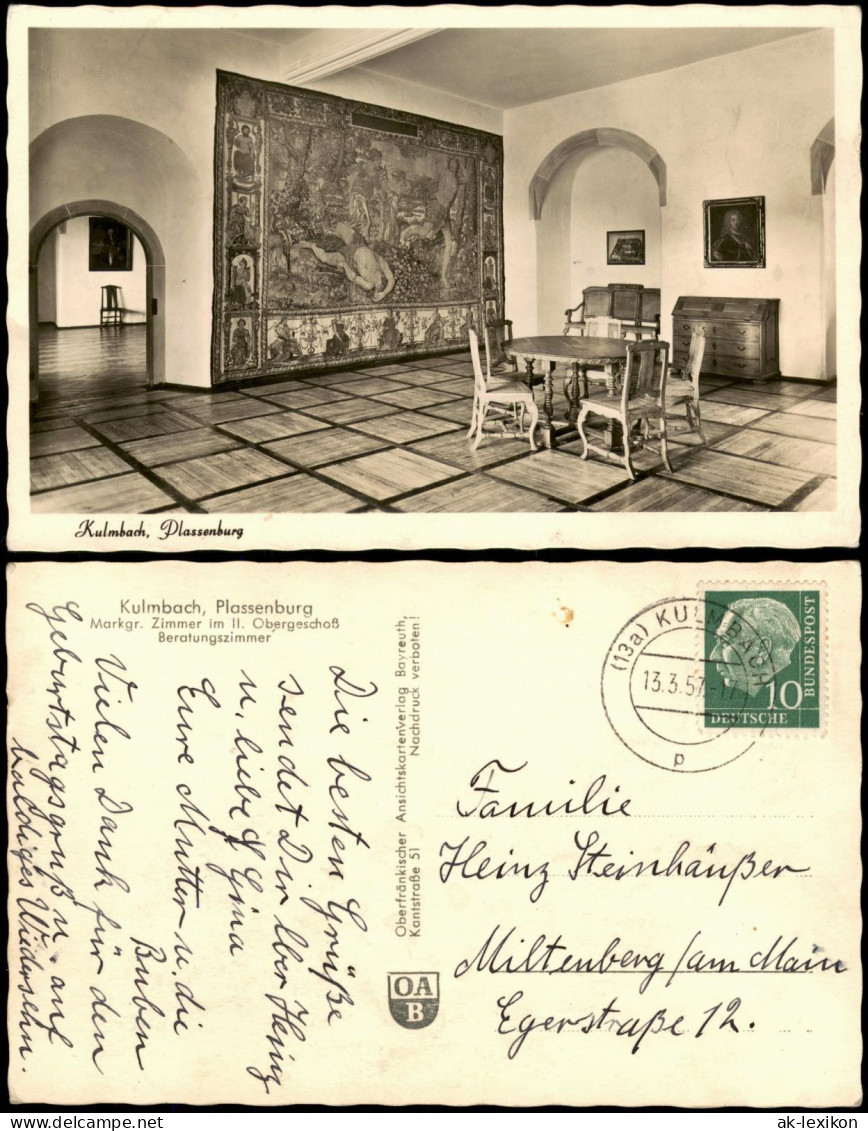 Kulmbach, Plassenburg
Kulmbach, Plassenburg
Markgr. Zimmer im II. Obergeschoß
Beratungszimmer
Die besten Grüße
sendet Dir lber Heinz
u. liebe Gina
Eure Mutter u. die
Buben
Vielen Dank für den
Geburtstagsgruß u. auf
baldiges Wiedersehn.
Oberfränkischer Ansichtskartenverlag Bayreuth,
Kantstraße 51 Nachdruck verboten!
OA
B
(13a) KULMBACH
13.3.57.-17
p
10
DEUTSCHE
BUNDESPOST
Familie
Heinz Steinhäußer
Miltenberg/am Main
Egerstraße 12.
ak-lexikon